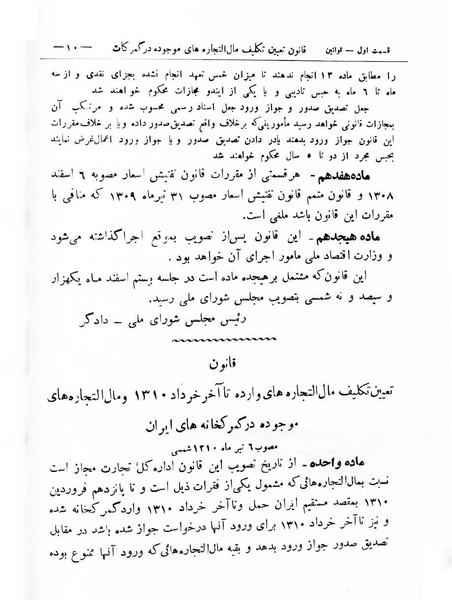 قسمت اول — قوانین قانون تعیین تکلیف مال‌التجاره های موجوده در گمرکات — ۱۰ —
را مطابق ماده ۱۳ انجام ندهند تا میزان خمس تعهد انجام نشده بجزای نقدی و از سه
ماه تا ۶ ماه به حبس تادیبی و یا یکی از ایندو مجازات محکوم خواهند شد
جعل تصدیق صدور و جواز ورود جعل اسناد رسمی محسوب شده و مرتکب آن
بمجازات قانونی خواهد رسید مأمورینی که بر خلاف واقع تصدیق صدور داده و یا بر خلاف مقررات
این قانون جواز ورود بدهند یا در دادن تصدیق صدور و یا جواز ورود اعمال غرض نمایند
بحبس مجرد از دو تا ۵ سال محکوم خواهند شد
ماده هفدهم — هر قسمتی از مقررات قانون تفتیش اسعار مصوبه ۶ اسفند
۱۳۰۸ و قانون متمم قانون تفتیش اسعار مصوب ۳۱ تیر ماه ۱۳۰۹ که منافی با
مقررات این قانون باشد ملغی است.
ماده هیجدهم — این قانون پس از تصویب بموقع اجرا گذاشته می‌شود
و وزارت اقتصاد ملی مامور اجرای آن خواهد بود.
این قانون که مشتمل بر هیجده ماده است در جلسه بیستم اسفند ماه یکهزار
و سیصد و نه شمسی بتصویب مجلس شورای ملی رسید.
رئیس مجلس شورای ملی — دادگر
قانون
تعیین تکلیف مال‌التجاره های وارده تا آخر خرداد ۱۳۱۰ و مال‌التجاره های
موجوده در گمرکخانه های ایران
مصوب ۶ تیر ماه ۱۳۱۰ شمسی
ماده واحده — از تاریخ تصویب این قانون اداره کل تجارت مجاز است
نسبت بمال‌التجاره هائی که مشمول یکی از فقرات ذیل است و تا پانزدهم فروردین
۱۳۱۰ بمقصد مستقیم ایران حمل و تا آخر خرداد ۱۳۱۰ وارد گمرکخانه شده
و نیز تا آخر خرداد ۱۳۱۰ برای ورود آنها درخواست جواز شده باشد در مقابل
تصدیق صدور جواز ورود بدهد و بقیه مال‌التجاره هائی که ورود آنها ممنوع بوده